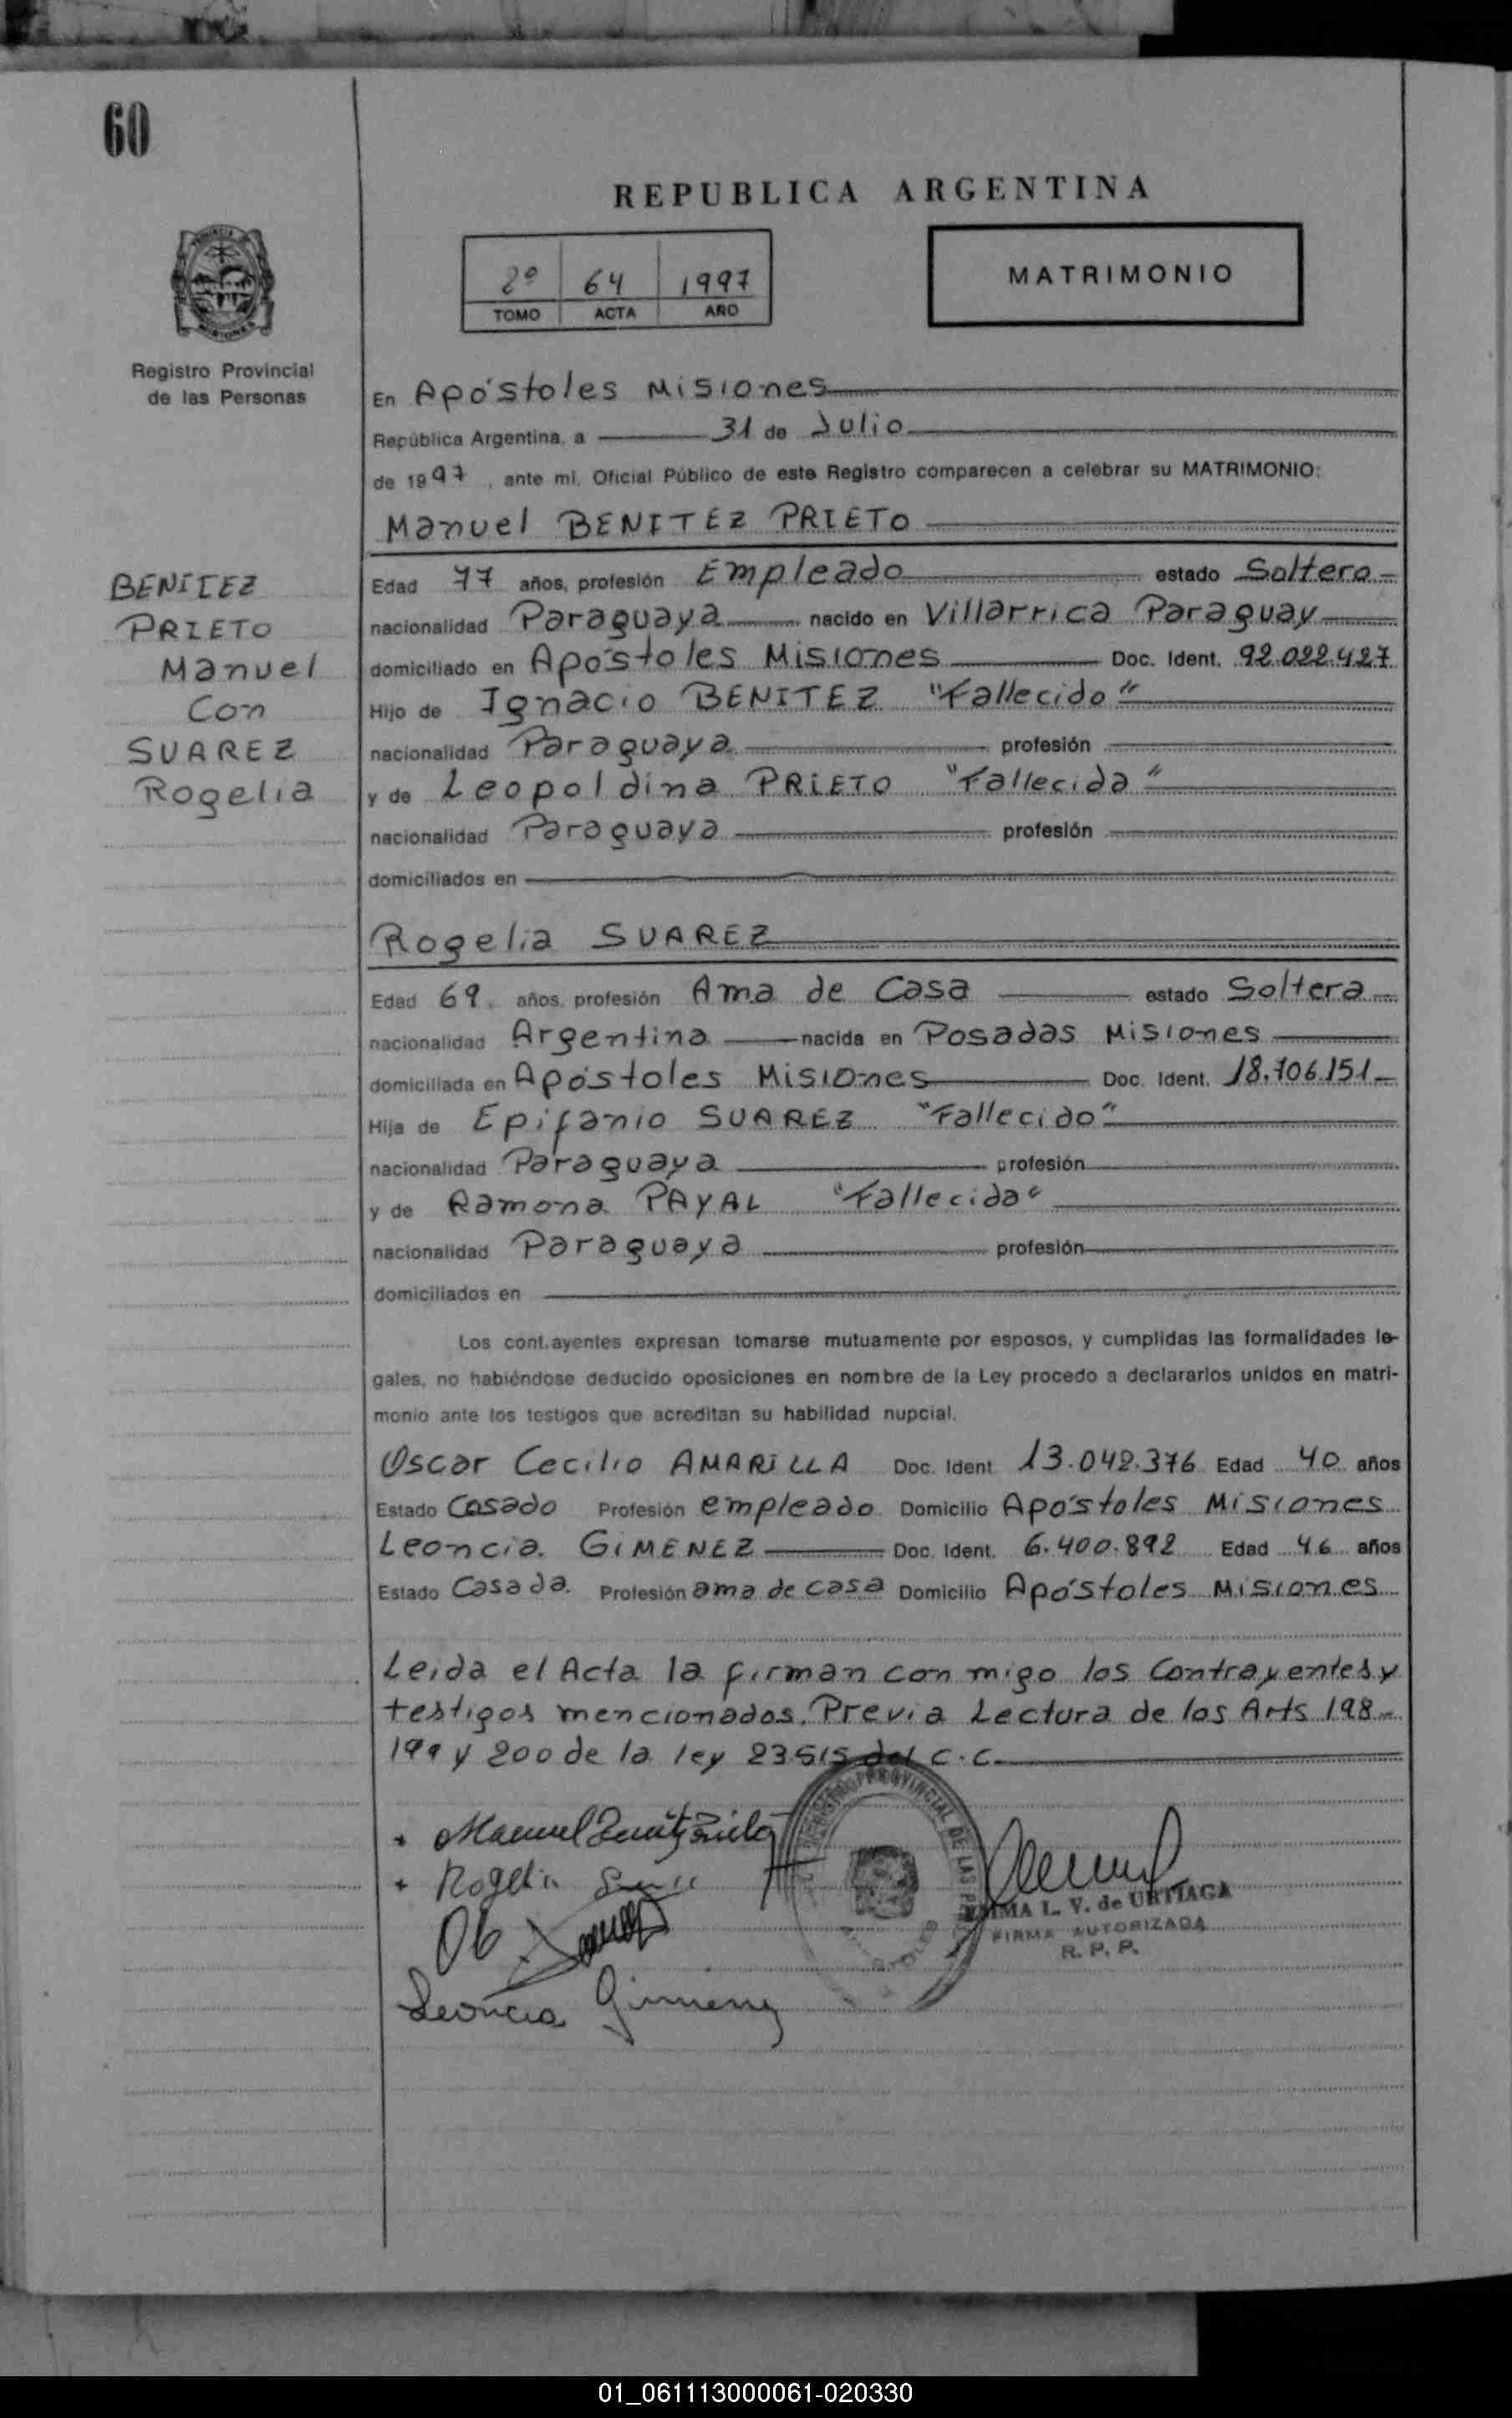 60
REPUBLICA ARGENTINA
2º 64 1997
TOMO ACTA AÑO
MATRIMONIO
PROVINCIA
MISIONES
Registro Provincial
de las Personas
En Apóstoles Misiones
República Argentina, a 31 de Julio
de 1997, ante mi, Oficial Público de este Registro comparecen a celebrar su MATRIMONIO:
Manuel BENITEZ PRIETO
BENITEZ
PRIETO
Manuel
Con
SUAREZ
Rogelia
Edad 77 años, profesión Empleado estado Soltero
nacionalidad Paraguaya nacido en Villarrica Paraguay
domiciliado en Apóstoles Misiones Doc. Ident. 92.022.427
Hijo de Ignacio BENITEZ "Fallecido"
nacionalidad Paraguaya profesión
y de Leopoldina PRIETO "Fallecida"
nacionalidad Paraguaya profesión
domiciliados en
Rogelia SUAREZ
Edad 69 años, profesión Ama de Casa estado Soltera
nacionalidad Argentina nacida en Posadas Misiones
domiciliada en Apóstoles Misiones Doc. Ident. 18.706.151
Hija de Epifanio SUAREZ "Fallecido"
nacionalidad Paraguaya profesión
y de Ramona PAYAL "Fallecida"
nacionalidad Paraguaya profesión
domiciliados en
Los cont.ayentes expresan tomarse mutuamente por esposos, y cumplidas las formalidades le-
gales, no habiéndose deducido oposiciones en nombre de la Ley procedo a declararlos unidos en matri-
monio ante los testigos que acreditan su habilidad nupcial.
Oscar Cecilio AMARILLA Doc. Ident. 13.042.376 Edad 40 años
Estado Casado Profesión empleado Domicilio Apóstoles Misiones
Leoncia GIMENEZ Doc. Ident. 6.400.892 Edad 46 años
Estado Casada Profesión ama de casa Domicilio Apóstoles Misiones
Leida el Acta la firman con migo los Contrayentes y
testigos mencionados. Previa Lectura de los Arts 198-
199 y 200 de la ley 23515 del C.C.
Manuel Benitez Prieto
Rogelia
PROVINCIAL DE LAS
L. V. de URTIAGA
FIRMA AUTORIZADA
R. P. P.
Leoncia Gimenez
01_061113000061-020330